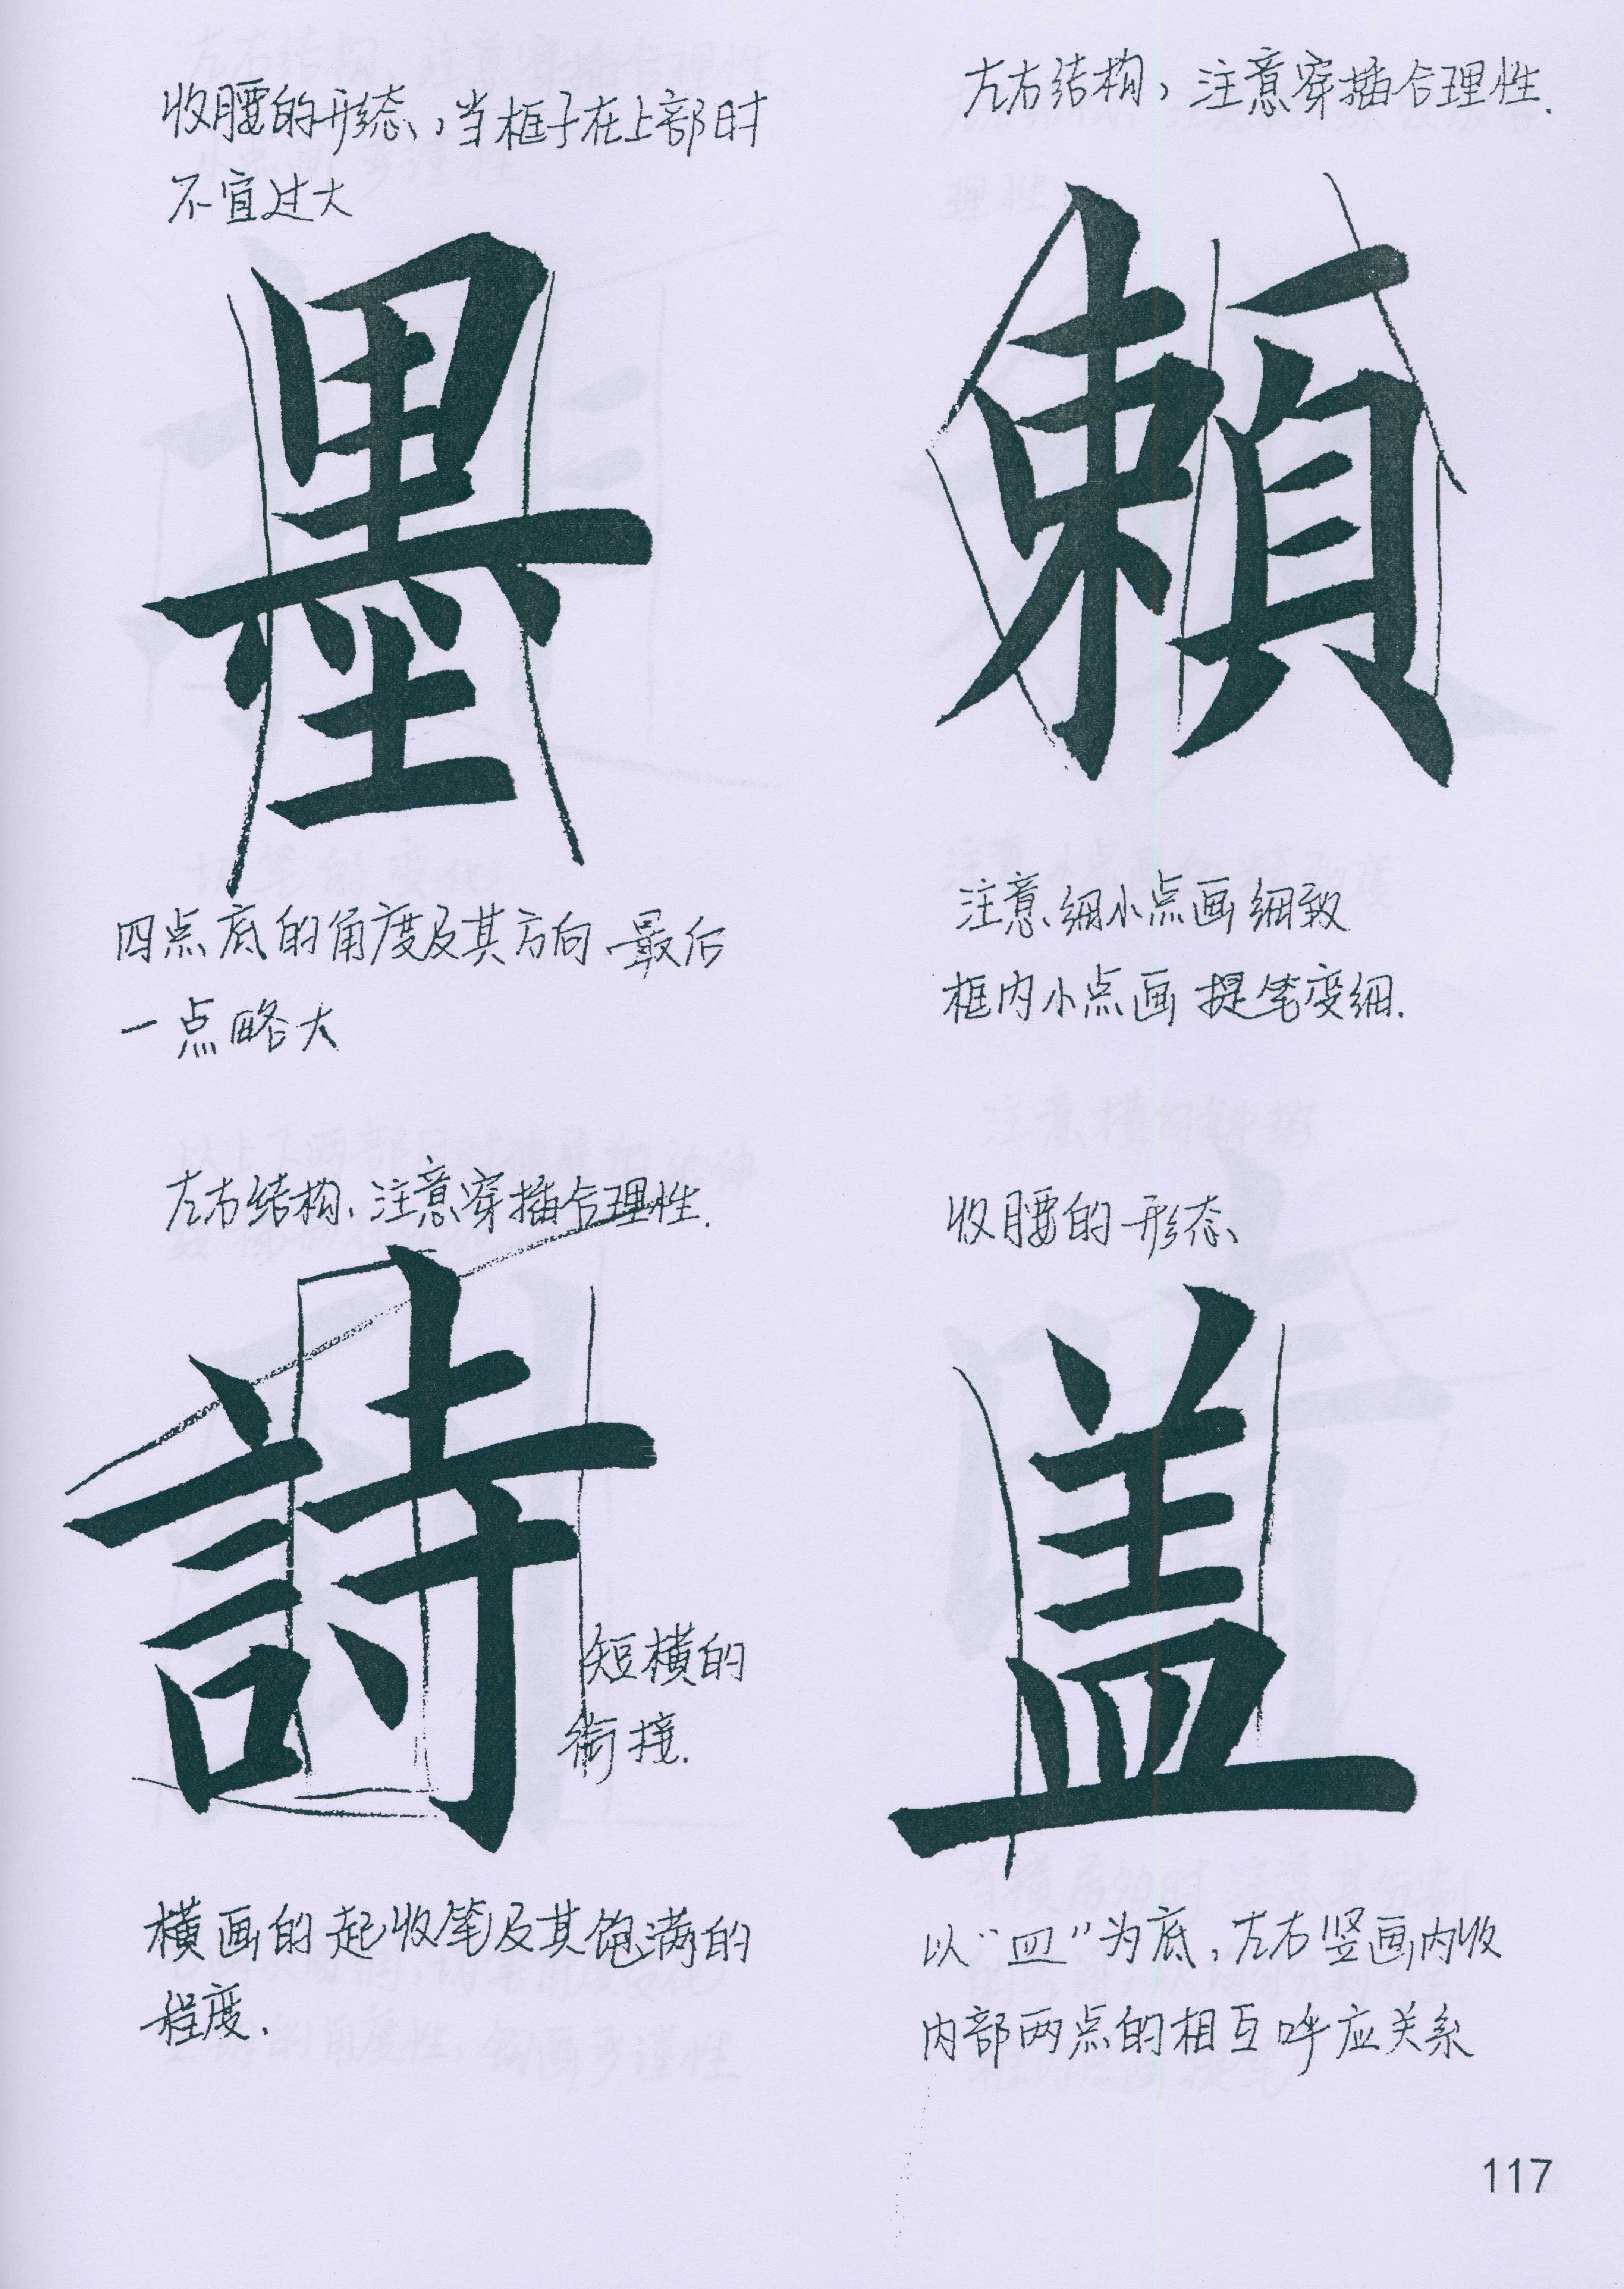 收腰的形态，当框子在上部时
不宜过大
墨
四点底的角度及其方向、最后
一点略大
左右结构，注意穿插合理性.
賴
注意细小点画细致
框内小点画提笔变细.
左右结构、注意穿插合理性.
詩
短横的
衔接.
横画的起收笔及其饱满的
程度.
收腰的形态
盖
以“皿”为底，左右竖画内收
内部两点的相互呼应关系
117